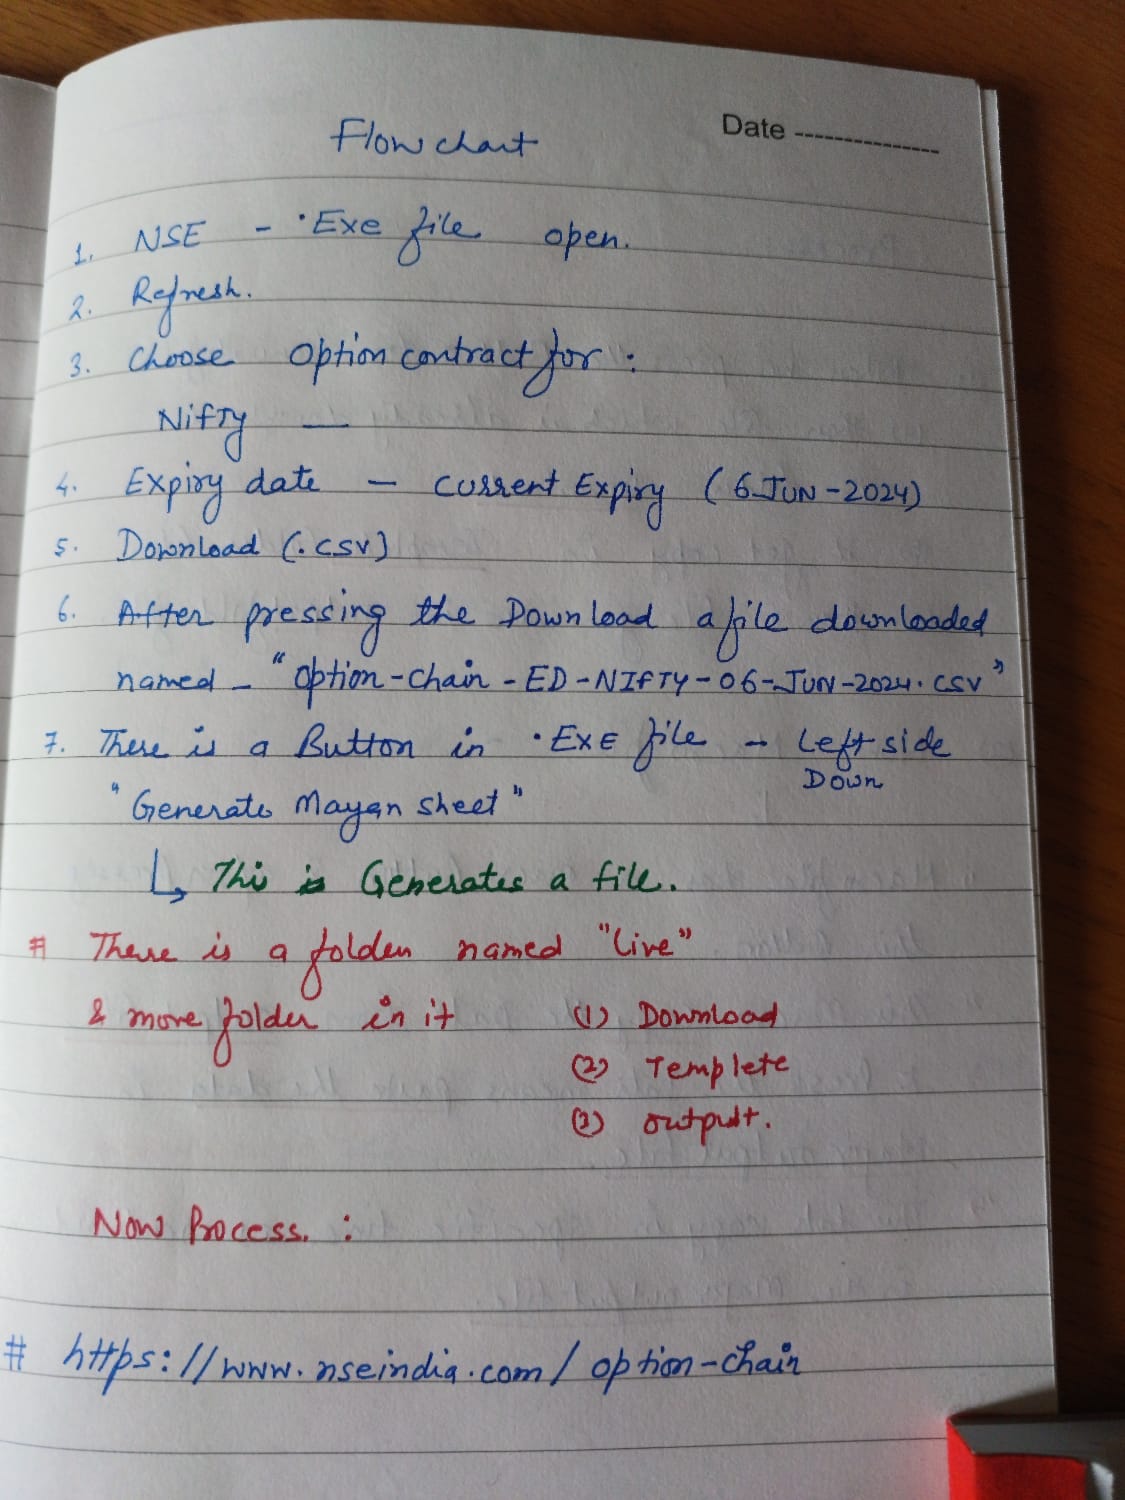 Date ---------------
Flow chart
1. NSE - .Exe file open.
2. Refresh.
3. Choose Option contract for :
Nifty —
4. Expiry date — Current Expiry ( 6-JUN-2024)
5. Download (.csv)
6. After pressing the Download a file downloaded
named - "option-chain-ED-NIFTY-06-JUN-2024.csv"
7. There is a Button in .EXE file - Left side
Down
"Generate Mayan sheet"
↳ This is Generates a file.
# There is a folder named "Live"
& more folder in it (1) Download
(2) Templete
(3) output.
Now Process. :
# https://www.nseindia.com/option-chain